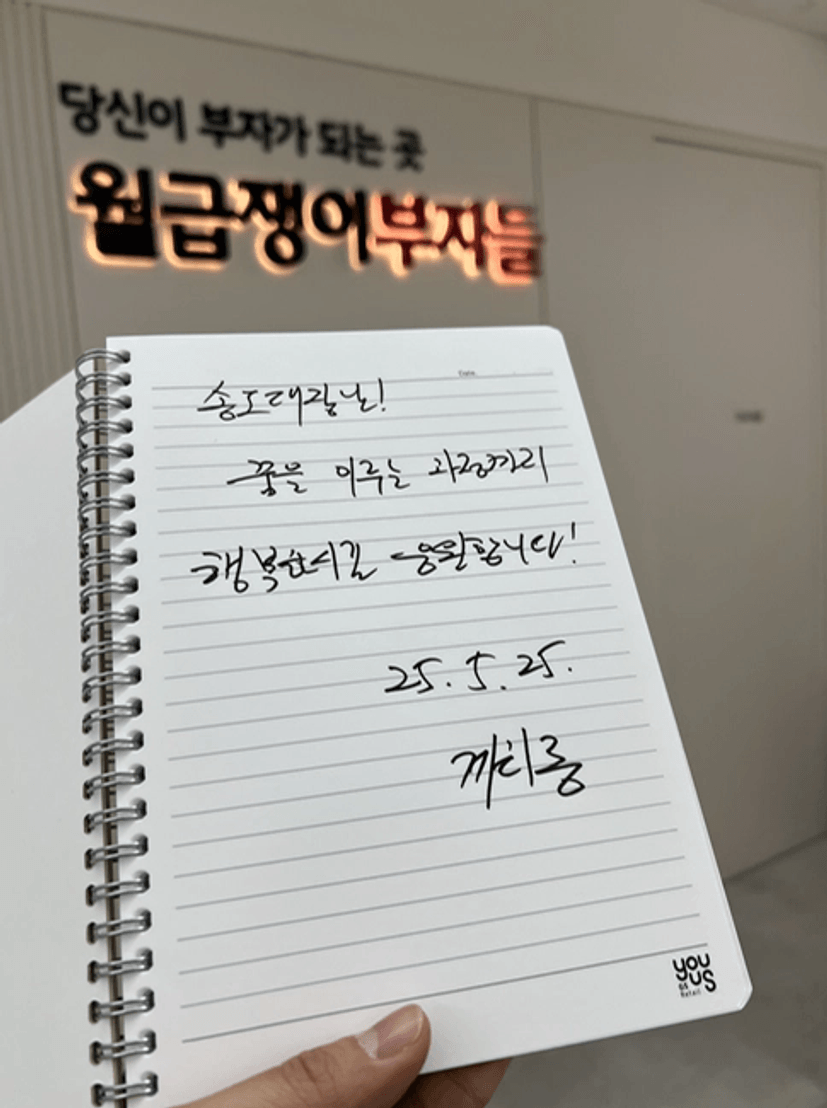 당신이 부자가 되는 곳
월급쟁이부자들
Date.
송도대장님!
꿈을 이루는 과정까지
행복하시길 응원합니다!
25. 5. 25.
YOU
US
GS
Retail